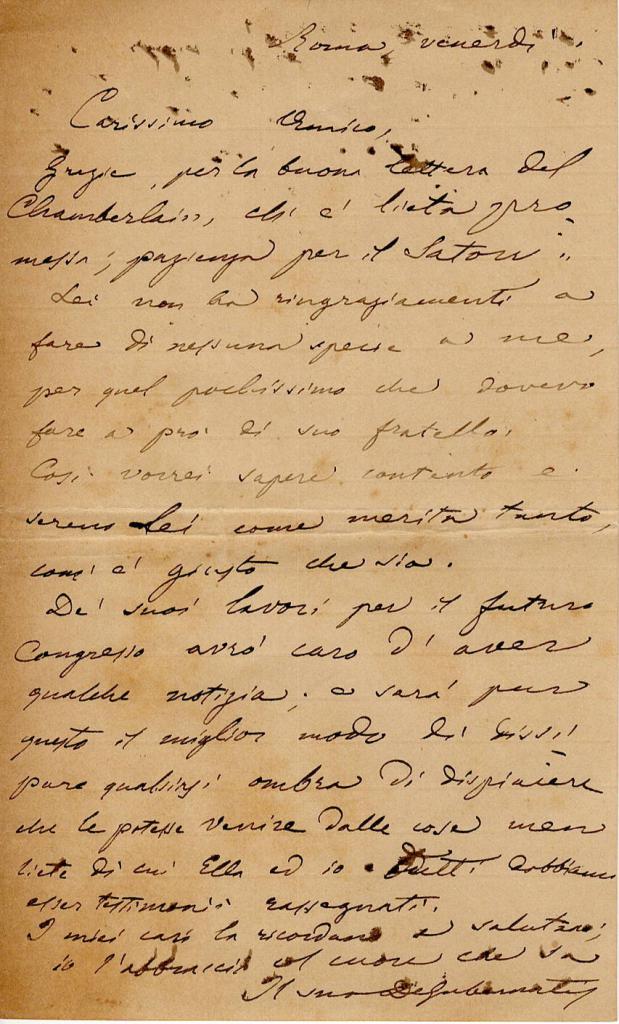 Roma, venerdì.
Carissimo Amico,
Grazie, per la buona lettera del
Chamberlain, ch' è lieta pro-
messa; pazienza per il Satow.
Lei non ha ringraziamenti a
fare di nessuna specie a me,
per quel pochissimo che dovevo
fare a pro' di suo fratello.
Così vorrei sapere contento e
sereno Lei come merita tanto,
com' è giusto che sia.
De' suoi lavori per il futuro
Congresso avrò caro d' aver
qualche notizia; e sarà pur
questo il miglior modo di dissi-
pare qualsiasi ombra di dispiacere
che le potesse venire dalle cose men
liete di cui Ella ed io dobbiamo
esser testimonii rassegnati.
I miei cari la ricordano e salutano;
io l'abbraccio col cuore che sa
Il suo DeGubernatis